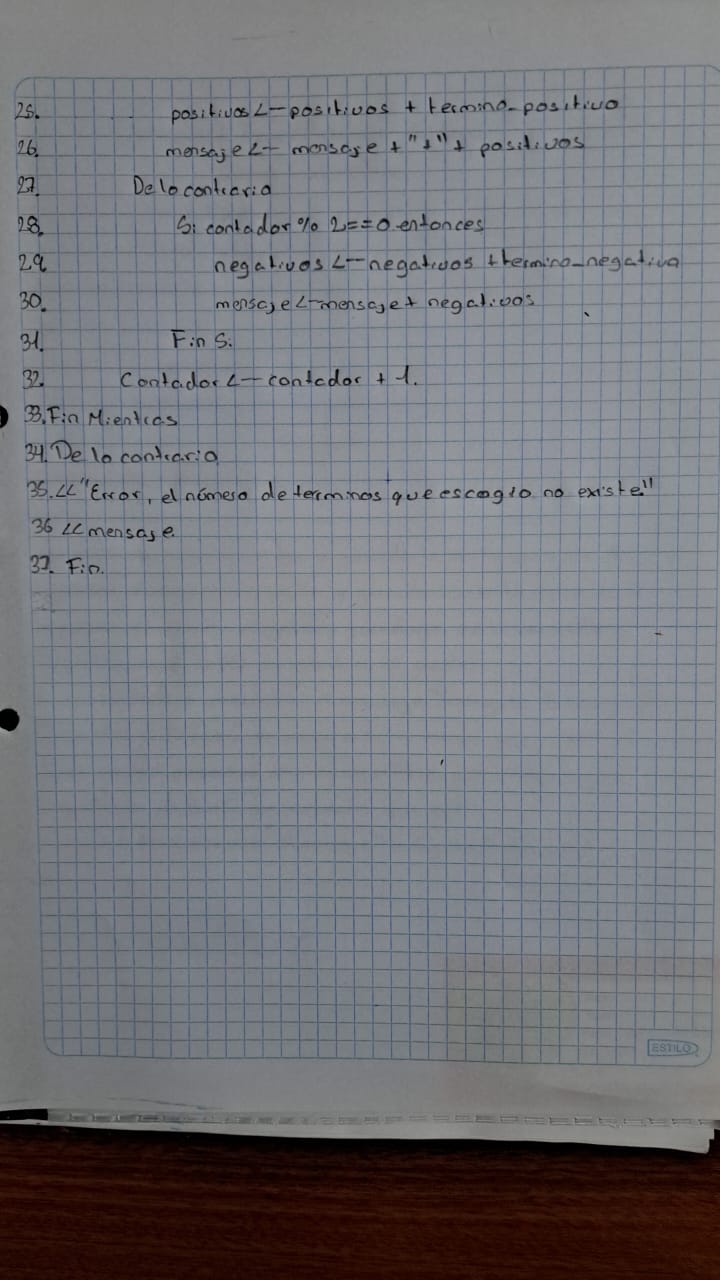 25. positivos <- positivos + termino_positivo
26. mensaje <- mensaje + "+" + positivos
27. De lo contrario
28. Si contador % 2 == 0 entonces
29. negativos <- negativos + termino_negativo
30. mensaje <- mensaje + negativos
31. Fin Si
32. Contador <- contador + 1.
33. Fin Mientras
34. De lo contrario
35. << "Error, el número de terminos que escogio no existe"
36 << mensaje
37. Fin.
ESTILO